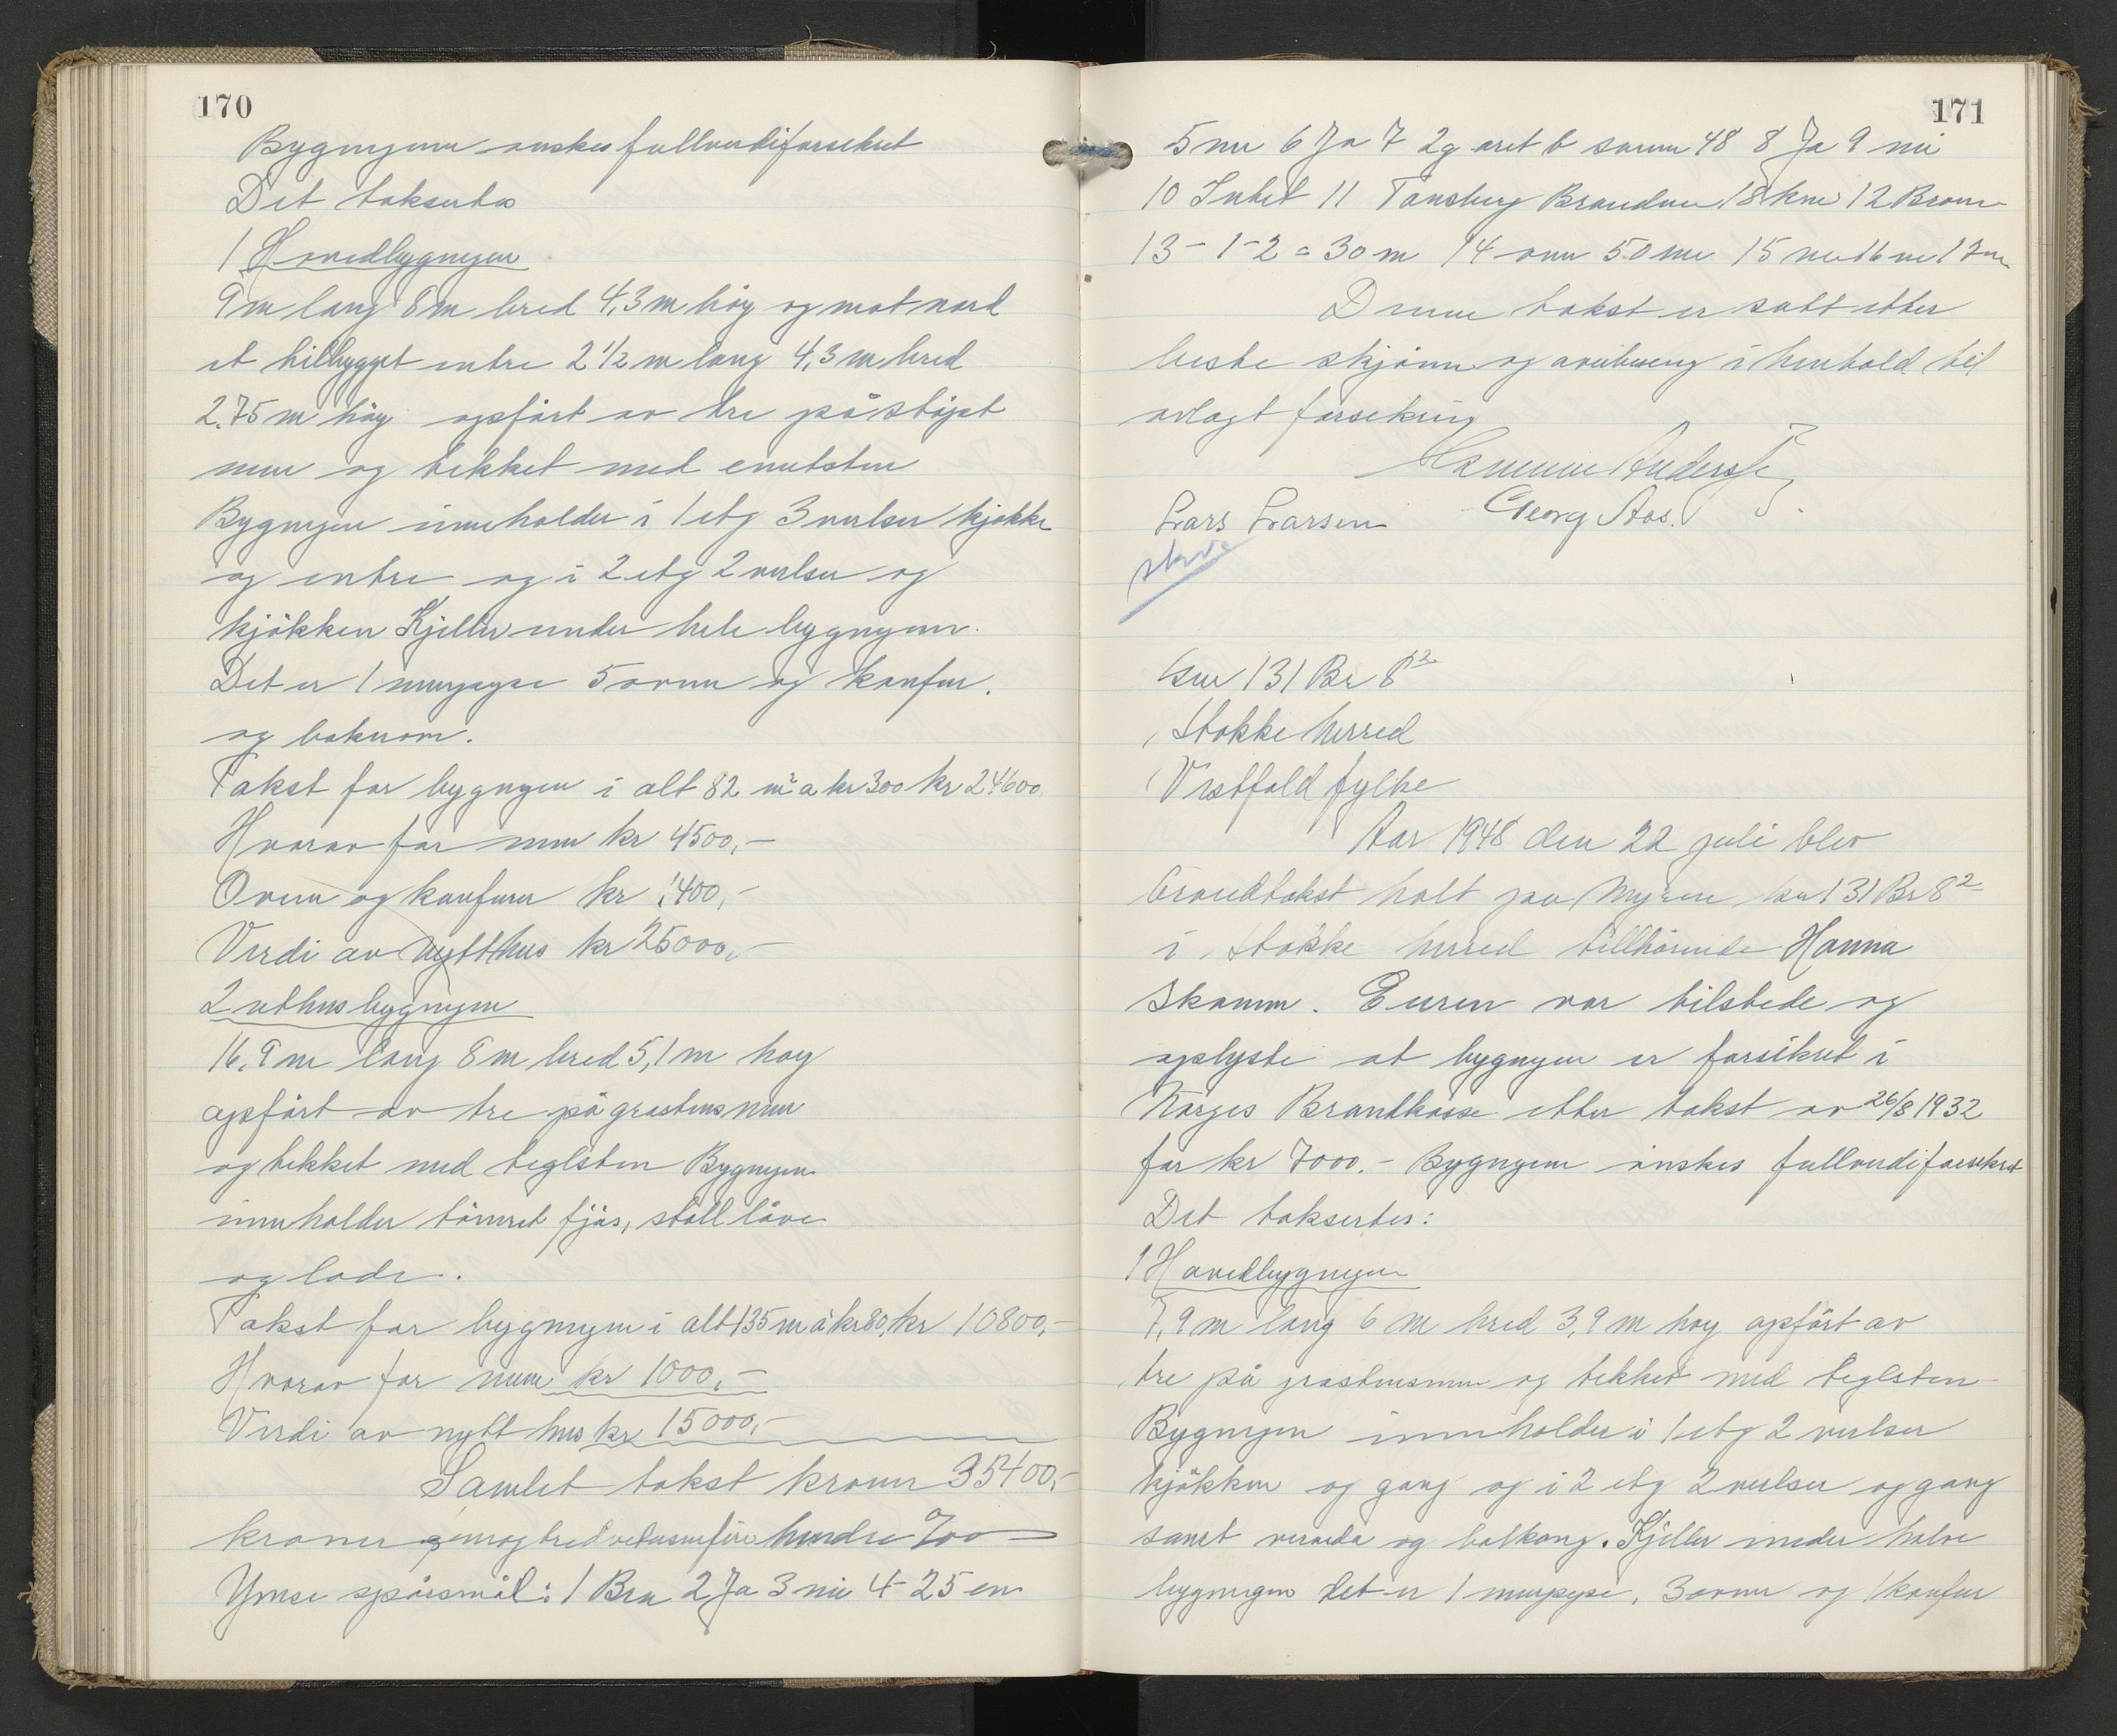 170
Bygningene ønskes fullverdiforsikret
Det taksertes
1 Hovedbygningen
9 m lang 8 m bred 4,3 m høy og mot nord
et tilbygget entre 2 1/2 m lang 4,3 m bred
2,75 m høy opført av tre på støpt
mur og tekket med
Bygningen inneholder i 1 etg 3 verelser kjøkken
og entre og i 2 etg 2 verelser og
kjøkken Kjeller under hele bygningen.
Det er 1 murpipe 5 ovner og komfur.
og bakerovn.
Takst for bygningen i alt 82 m² a kr 300 kr 24600
Hvorav for mur kr 4500,-
Ovner og komfurer kr 1400,-
Verdi av nytt hus kr 25000,-
2 uthusbygningen
16,9 m lang 8 m bred 5,1 m høy
opført av tre på gråstensmur
og tekket med teglsten Bygningen
inneholder tømret fjøs, stall låve
og lade.
Takst for bygningen i alt 135 m a kr 80, kr 10800,-
Hvorav for mur kr 1000,-
Verdi av nytt hus kr 15000,-
Samlet takst kroner 35400,-
kroner femogtredvetusenfire hundre 7/00
Ymse spørsmål: 1 Bra 2 Ja 3 nei 4 - 25 en
171
5 nei 6 Ja 7 2g aret b samme 48 8 Ja 9 nei
10 Intet 11 Tønsberg Brandven 18 km 12 Brønn
13 - 1-2 = 30 m 14 over 50 m 15 nei 16 nei 17 nei
Denne takst er satt etter
beste skjønn og overbevisning i henhold til
avlagt forsikring
Anders
Lars Larsen Georg Aas.
skrve
Gnr 131 Br 8²
Stokke herred
Vestfold fylke
Aar 1948 den 22 juli blev
brandtakst holt paa Myren Gnr 131 Br 8²
i Stokke herred tillhørende Hanna
Skamm. Eieren var tilstede og
oplyste at bygningen er forsikret i
Norges Brandkasse etter takst av 26/8 1932
for kr 7000.- Bygningene ønskes fullverdiforsikret
Det taksertes:
1 Hovedbygningen
7,9 m lang 6 m bred 3,9 m høy opført av
tre på gråstensmur og tekket med teglsten
Bygningen inneholder i 1 etg 2 verelser
kjøkken og gang og i 2 etg 2 verelser og gang
samt veranda og balkong. Kjeller under halve
bygningen det er 1 murpipe, 3 ovner og 1 komfur